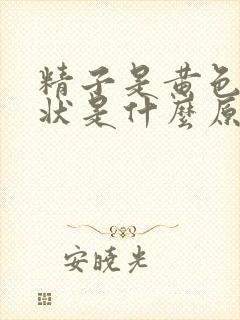 精子是黄色
状是什麼原
安晓光